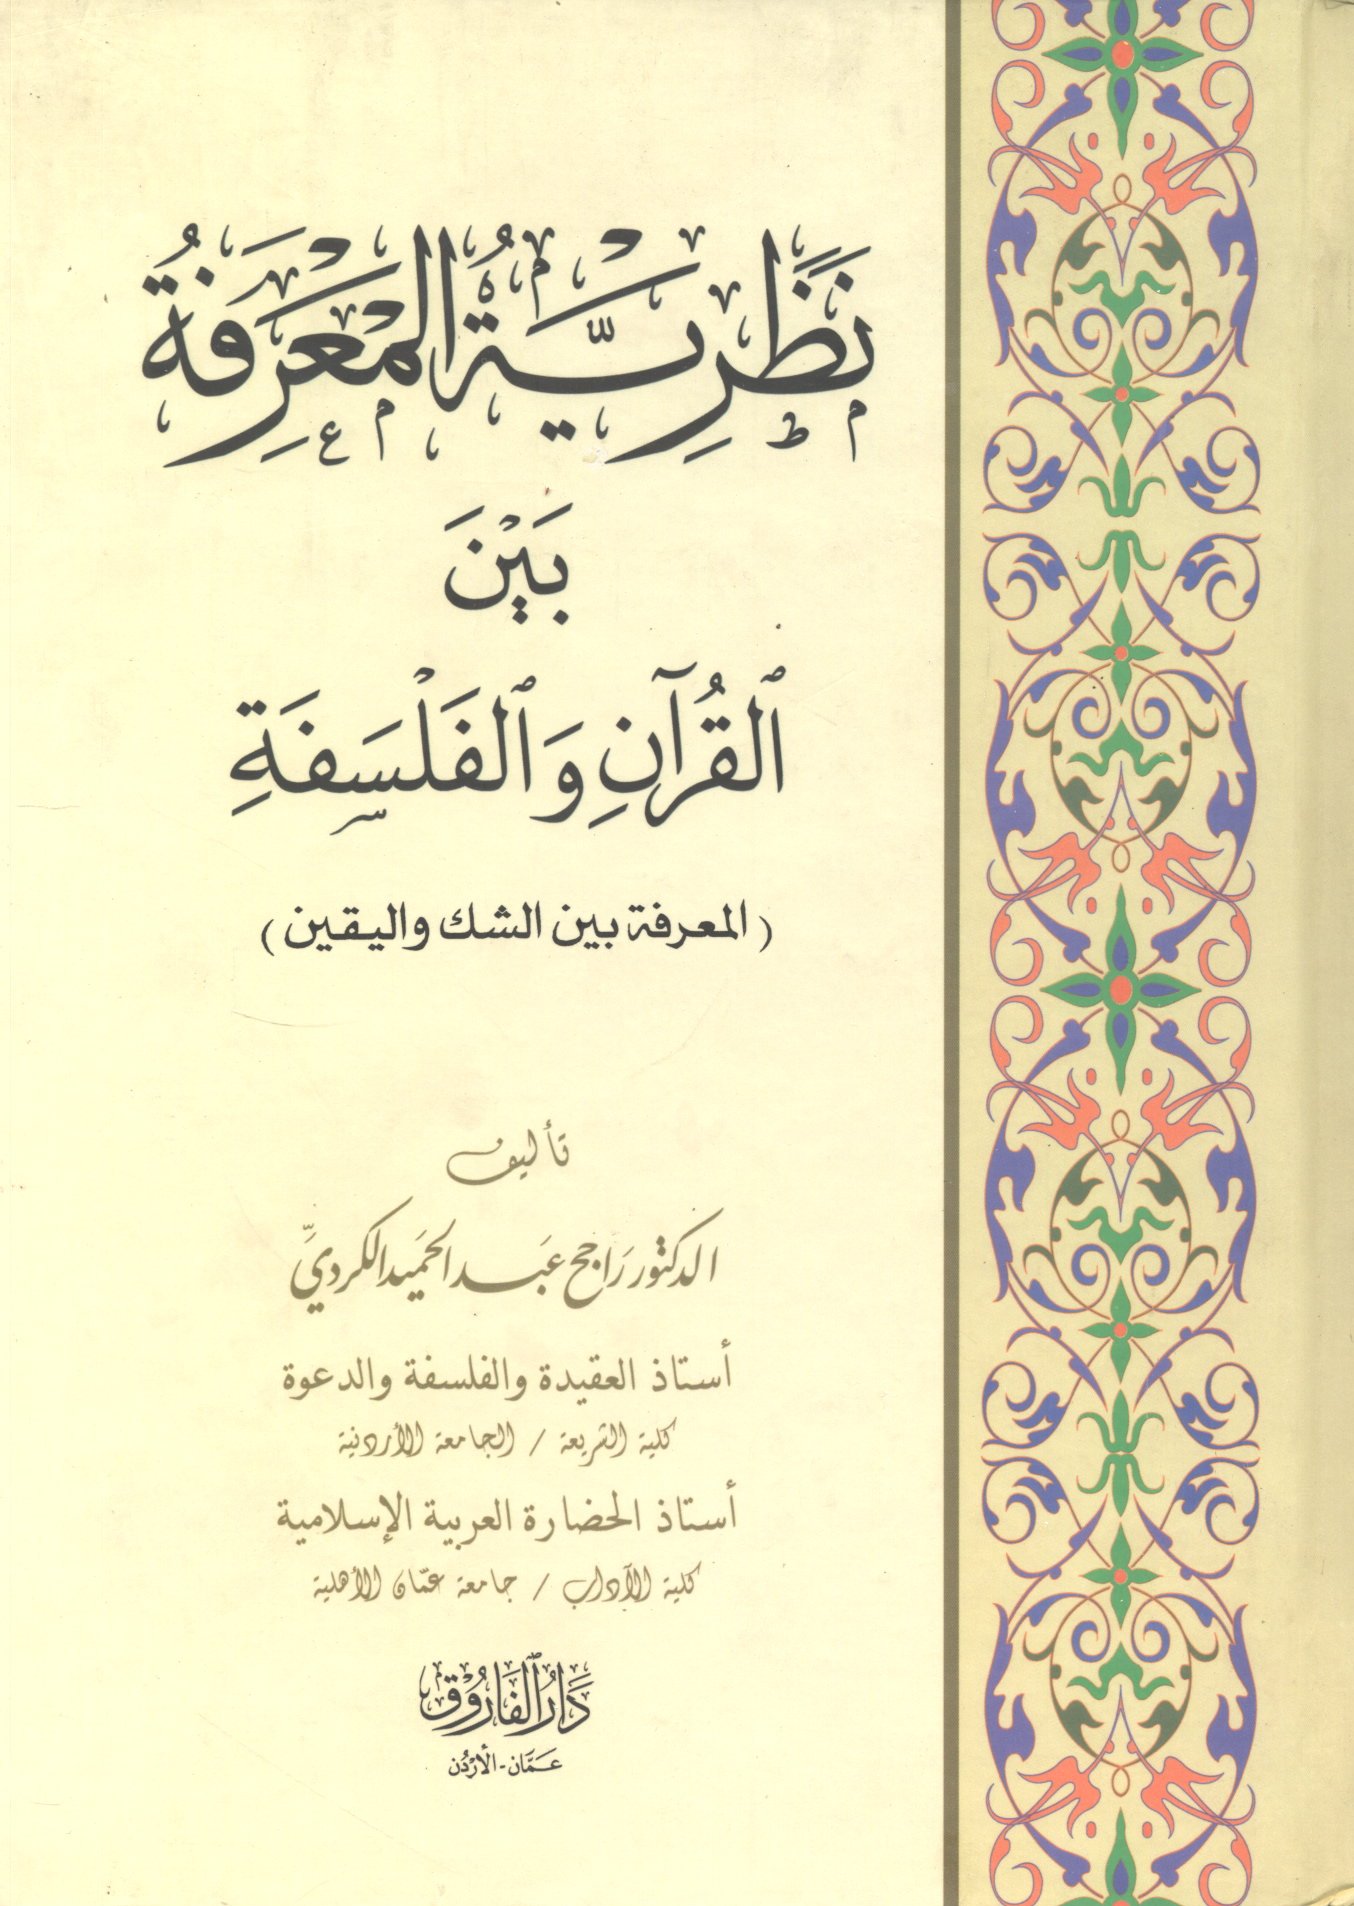 نَظَرِيَّةُ المَعْرِفَةُ
بَيْنَ
ٱلقُرآنِ وَٱلفَلْسَفَةِ
(المعرفة بين الشك واليقين)
تأليف
الدكتور رَاجح عَبد الحَميد الكرديّ
أستاذ العقيدة والفلسفة والدعوة
كلية الشريعة / الجامعة الأردنية
أستاذ الحضارة العربية الإسلامية
كلية الآداب / جامعة عمّان الأهلية
دَارُ ٱلفَارُوْق
عَمَّان - الأُرْدُن